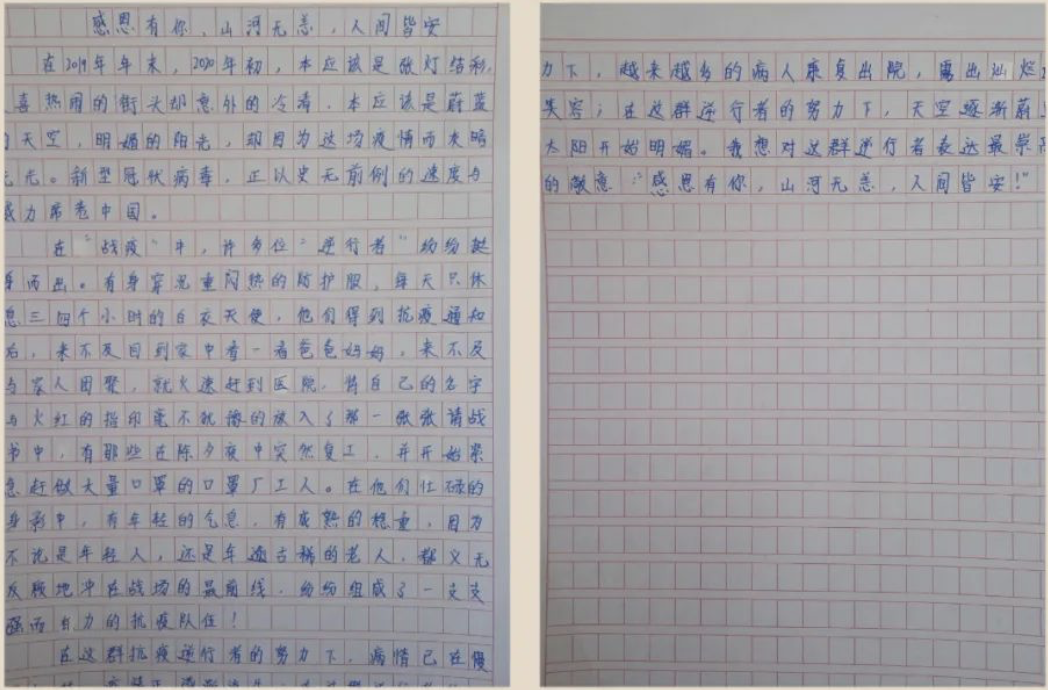 感恩有你，山河无恙，人间皆安
在2019年年末，2020年初，本应该是张灯结彩，
喜热闹的街头却意外的冷清，本应该是蔚蓝
天空，明媚的阳光，却因为这场疫情而来暗
无光。新型冠状病毒，正以史无前例的速度与
威力席卷中国。
在“战疫”中，许多位“逆行者”纷纷挺
身而出。有身穿
重闷热的防护服，每天只休
息三四个小时的白衣天使，他们得到抗疫通知
后，来不及回到家中看一看爸爸妈妈，来不及
与家人团聚，就火速赶到医院，将自己的名字
与火红的指印毫不犹豫的
入了那一张张请战
书中，有那些在除夕夜中突然复工，并开始紧
急赶做大量口罩的口罩厂工人。在他们忙碌的
身影中，有年轻的气息，有成熟的稳重，因为
不论是年轻人，还是年过古稀的老人，都义无
反顾地冲在战场的最前线，纷纷组成了一支支
强而有力的抗疫队伍！
在这群抗疫逆行者的努力下，病情已在慢
力下，越来越多的病人康复出院，露出灿烂
笑容；在这群逆行者的努力下，天空逐渐蔚
太阳开始明媚。我想对这群逆行者表达最崇高
的敬意：“感恩有你，山河无恙，人间皆安！”